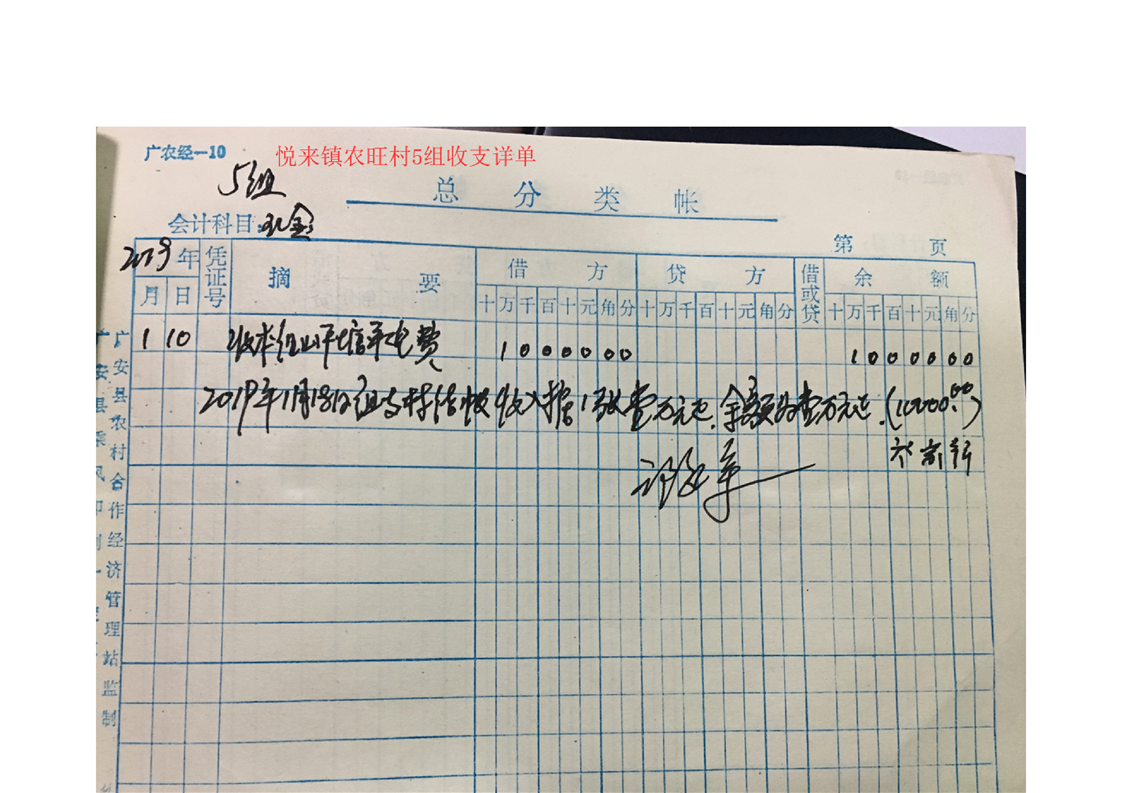 广农经—10
悦来镇农旺村5组收支详单
5组
总分类帐
会计科目:现金
第 页
2019年 凭证号 摘要 借方 贷方 借或贷 余额
月 日 十万千百十元角分 十万千百十元角分 十万千百十元角分
1 10 收本组山坪塘承包费 1000000 1000000
2019年1月18日组与村结帐收入据1张壹万元正.余额为壹万元正.(10000.00)
广安县农村合作经济管理站监制